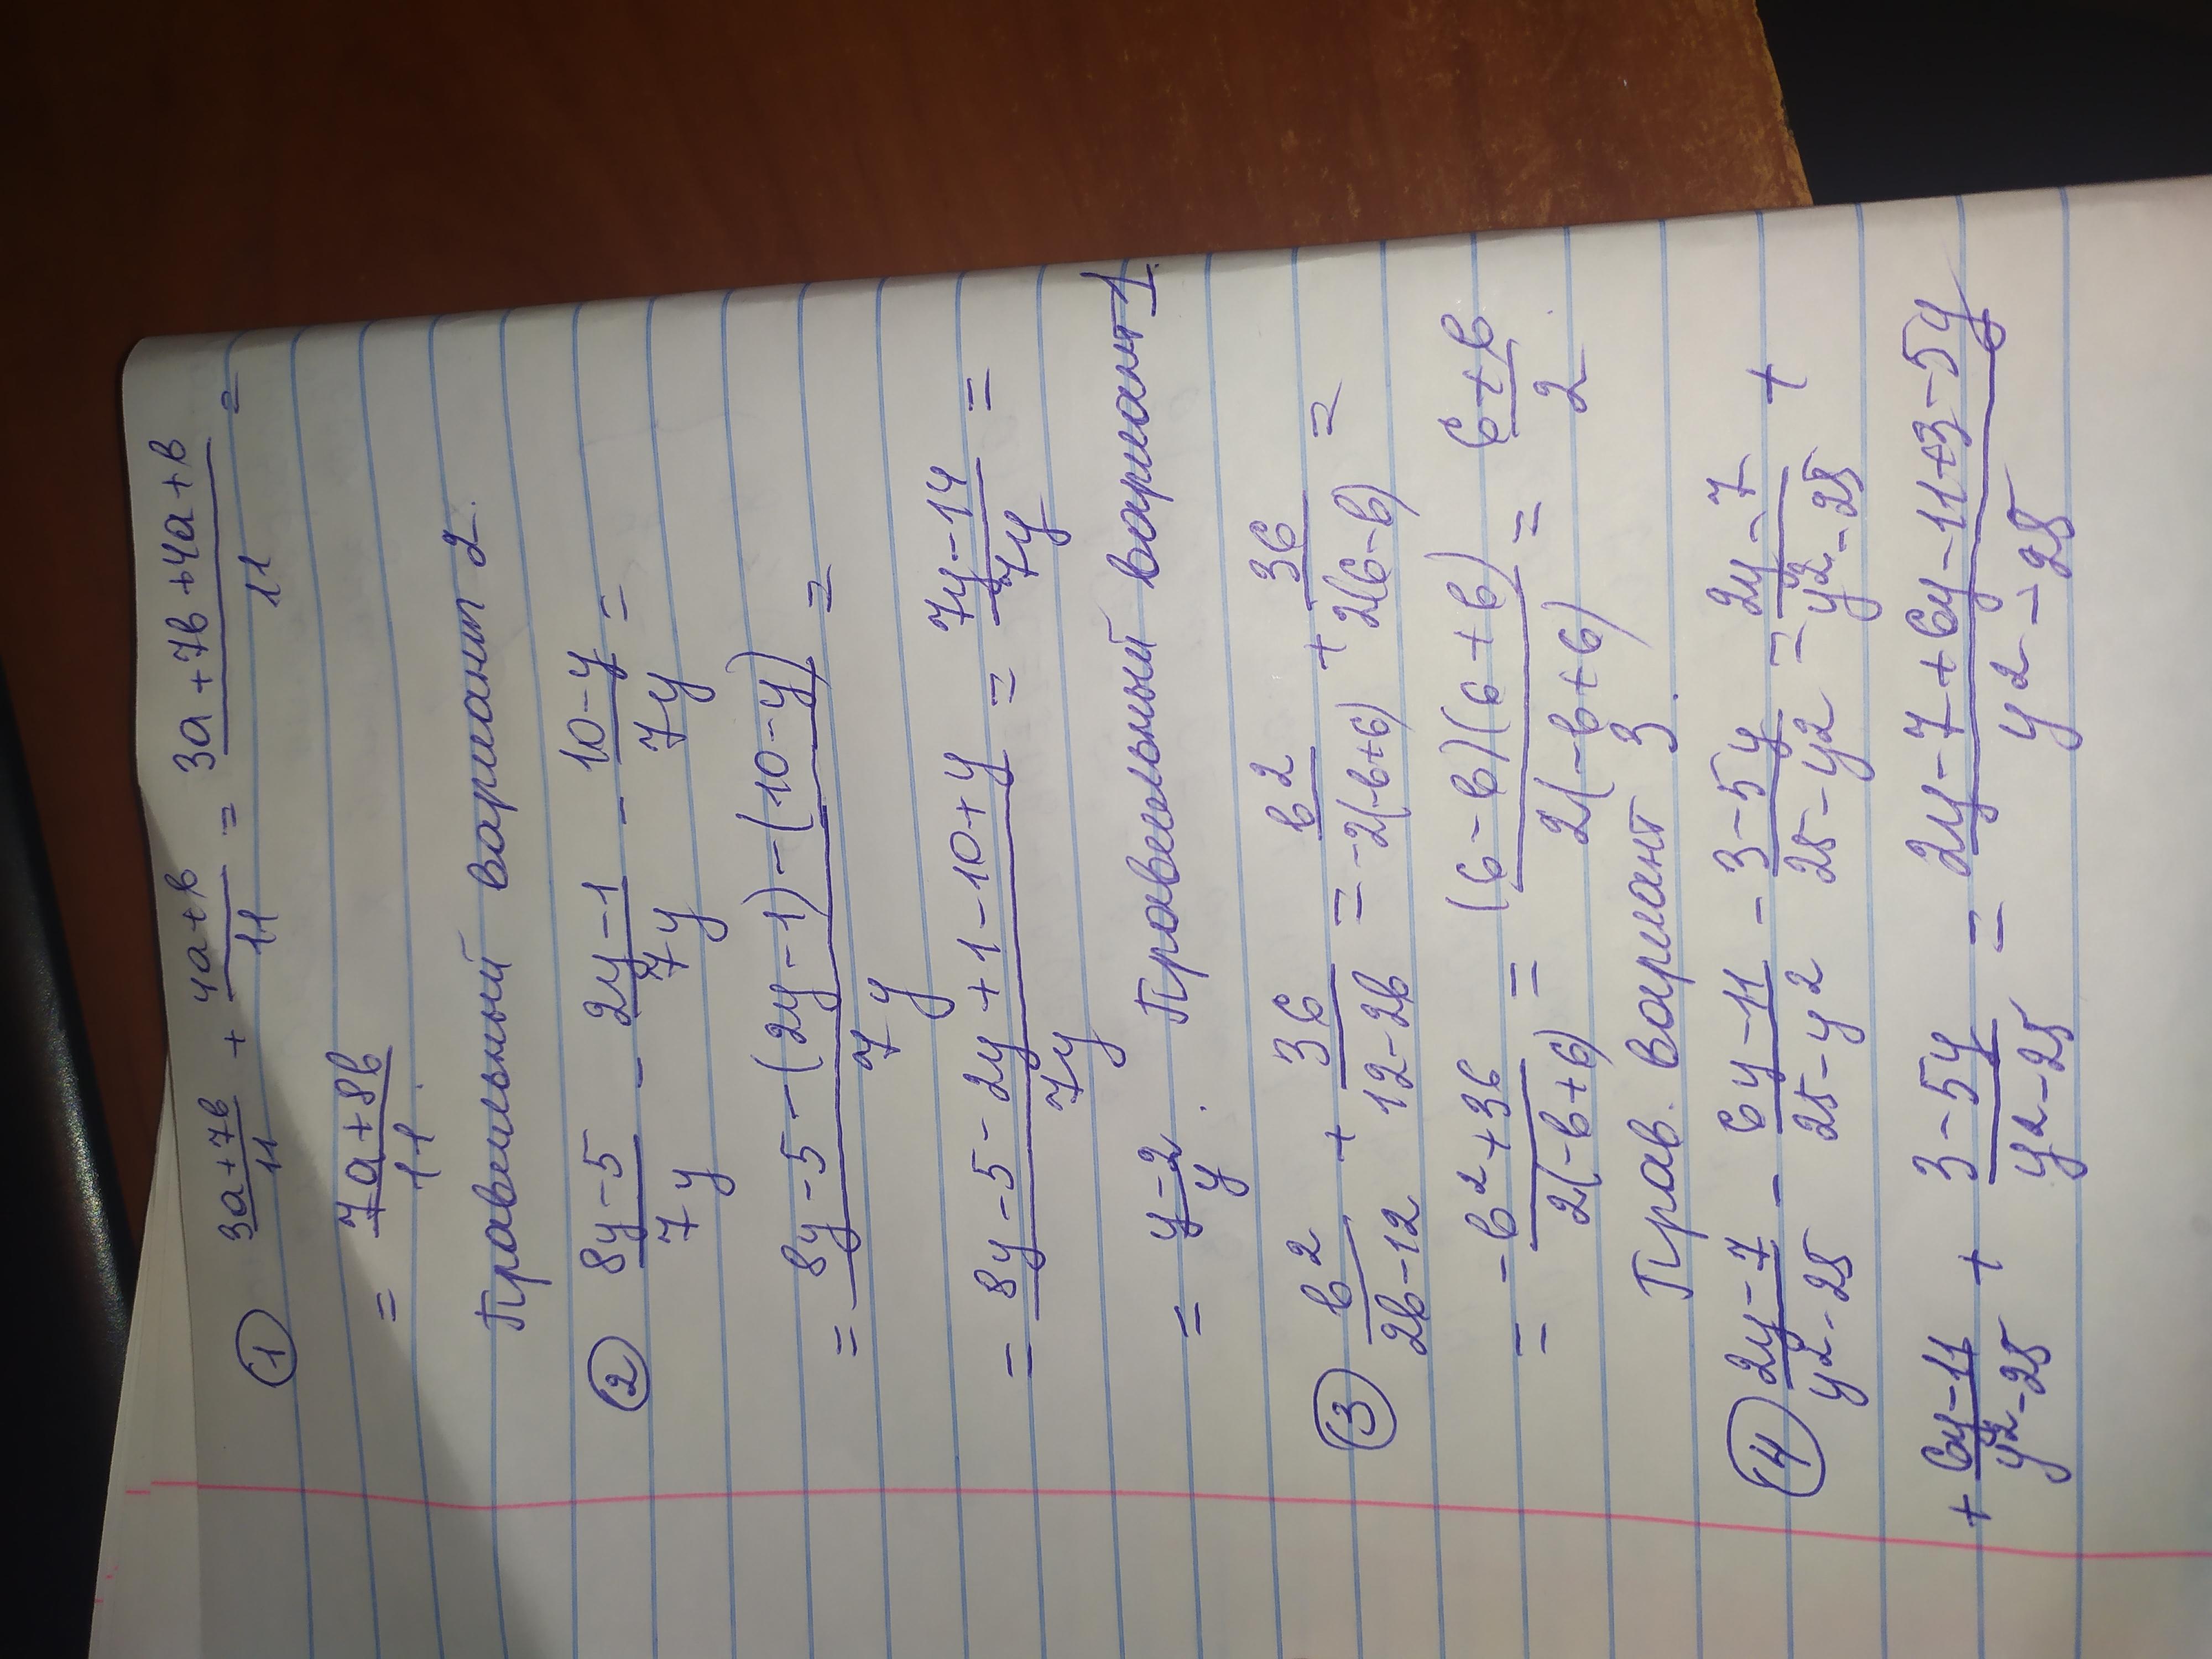 ① (3a+7b)/11 + (4a+b)/11 = (3a+7b+4a+b)/11 =
= (7a+8b)/11.
Правельный вариант 2.
② (8y-5)/7y - (2y-1)/7y - (10-y)/7y =
= (8y-5-(2y-1)-(10-y))/7y =
= (8y-5-2y+1-10+y)/7y = (7y-14)/7y =
= (y-2)/y. Правельный вариант 1.
③ b²/(2b-12) + 36/(12-2b) = b²/(-2(-b+6)) + 36/(2(6-b)) =
= (-b²+36)/(2(-b+6)) = ((6-b)(6+b))/(2(-b+6)) = (6+b)/2.
Прав. вариант 3.
④ (2y-7)/(y²-25) - (6y-11)/(25-y²) - (3-5y)/(25-y²) = (2y-7)/(y²-25) +
+ (6y-11)/(y²-25) + (3-5y)/(y²-25) = (2y-7+6y-11+3-5y)/(y²-25)